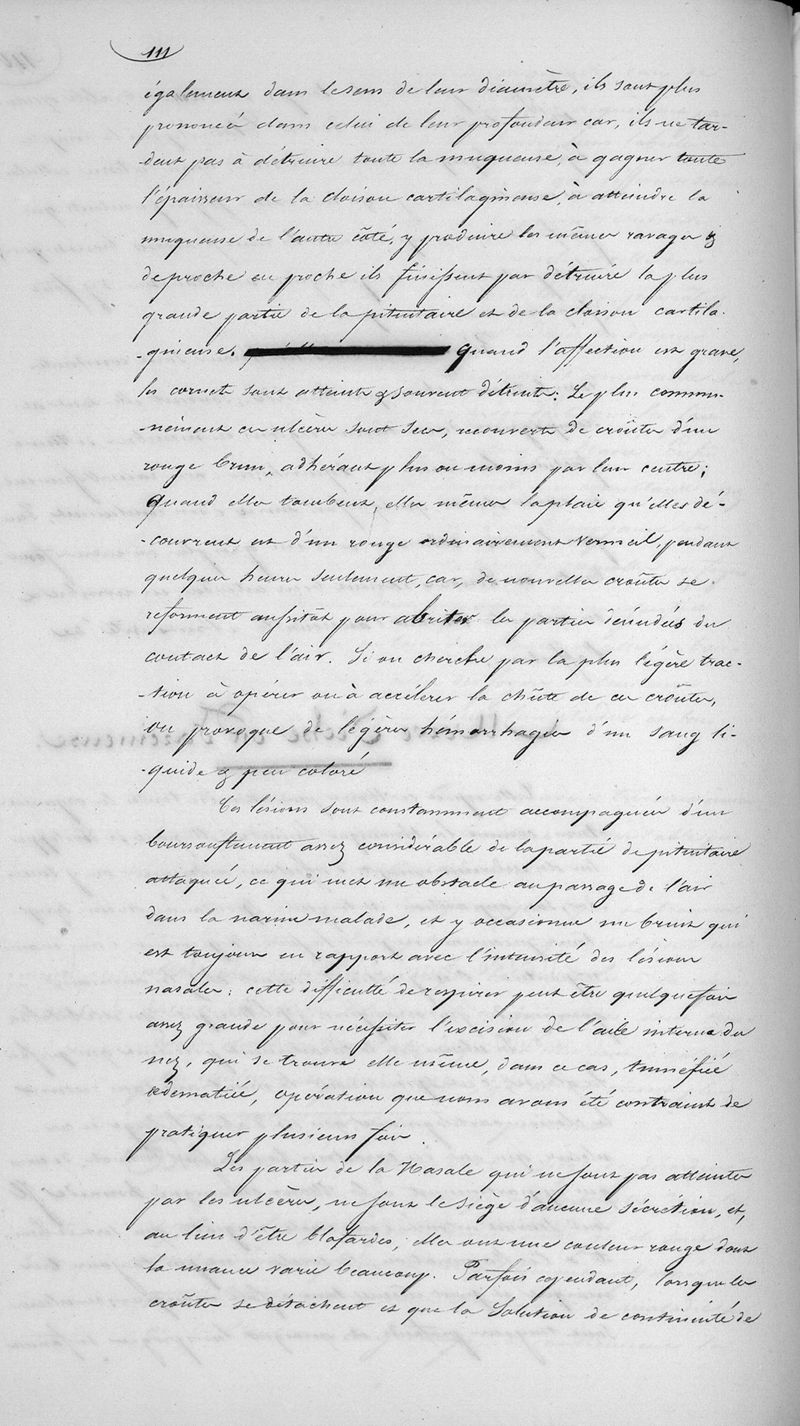 111
également dans le sens de leur diamètre, ils sont plus
prononcés dans celui de leur profondeur car, ils ne tar-
-dent pas à détruire toute la muqueuse, à gagner toute
l'épaisseur de la cloison cartilagineuse, à atteindre la
muqueuse de l'autre côté, y produire les mêmes ravages &
de proche en proche ils finissent par détruire la plus
grande partie de la pituitaire et de la cloison cartila-
-gineuse. Quand l'affection est grave,
les cornets sont atteints & souvent détruits: Le plus commu-
-nément ces ulcères sont secs, recouverts de croûtes d'un
rouge brun, adhérant plus ou moins par leur centre;
quand elles tombent, elles mêmes la plaie qu'elles dé-
-couvrent est d'un rouge ordinairement vermeil, pendant
quelques heures seulement, car, de nouvelles croûtes se
reforment aussitôt pour abriter les parties dénudées du
contact de l'air. Si on cherche par la plus légère trac-
-tion à opérer ou à accélérer la chûte de ces croûtes,
on provoque de légères hémorrhagies d'un sang li-
-quide & peu coloré
Ces lésions sont constamment accompagnées d'un
boursouflement assez considérable de la partie de pituitaire
attaquée, ce qui met un obstacle au passage de l'air
dans la narine malade, et y occasionne un bruit qui
est toujours en rapport avec l'intensité des lésions
nasales: cette difficulté de respirer peut être quelquefois
assez grande pour nécessiter l'excision de l'aile interne du
nez, qui se trouve elle même, dans ce cas, tuméfiée
œdematiée, opération que nous avons été contraint de
pratiquer plusieurs fois.
Les parties de la Nasale qui ne sont pas atteintes
par les ulcères, ne sont le siège d'aucune sécrétion, et,
au lieu d'être blafardes, elles ont une couleur rouge dont
la nuance varie beaucoup. Parfois cependant, lorsque les
croûtes se détachent et que la solution de continuité de